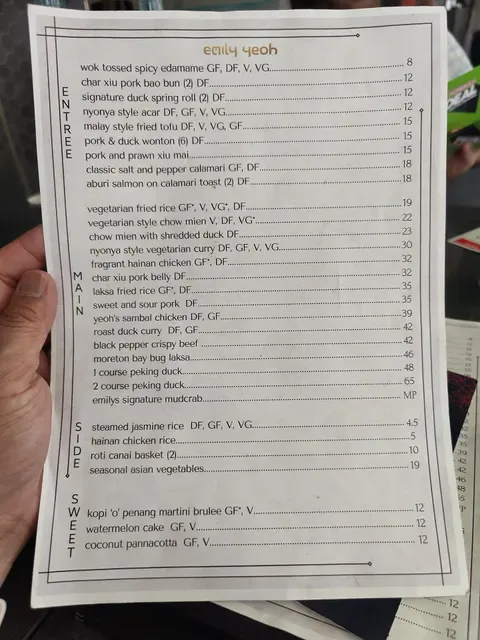 emily yeoh
ENTREE
wok tossed spicy edamame GF, DF, V, VG 8
char xiu pork bao bun (2) DF 12
signature duck spring roll (2) DF 12
nyonya style acar DF, GF, V, VG 12
malay style fried tofu DF, V, VG, GF 15
pork & duck wonton (6) DF 15
pork and prawn xiu mai 15
classic salt and pepper calamari GF, DF 18
aburi salmon on calamari toast (2) DF 18
MAIN
vegetarian fried rice GF*, V, VG*, DF 19
vegetarian style chow mien V, DF, VG* 22
chow mien with shredded duck DF 23
nyonya style vegetarian curry DF, GF, V, VG 30
fragrant hainan chicken GF*, DF 32
char xiu pork belly DF 32
laksa fried rice GF*, DF 35
sweet and sour pork DF 35
yeoh's sambal chicken DF, GF 39
roast duck curry DF, GF 42
black pepper crispy beef 42
moreton bay bug laksa 46
1 course peking duck 48
2 course peking duck 65
emilys signature mudcrab MP
SIDE
steamed jasmine rice DF, GF, V, VG 4.5
hainan chicken rice 5
roti canai basket (2) 10
seasonal asian vegetables 19
SWEET
kopi 'o' penang martini brulee GF*, V 12
watermelon cake GF, V 12
coconut pannacotta GF, V 12
12
12
12